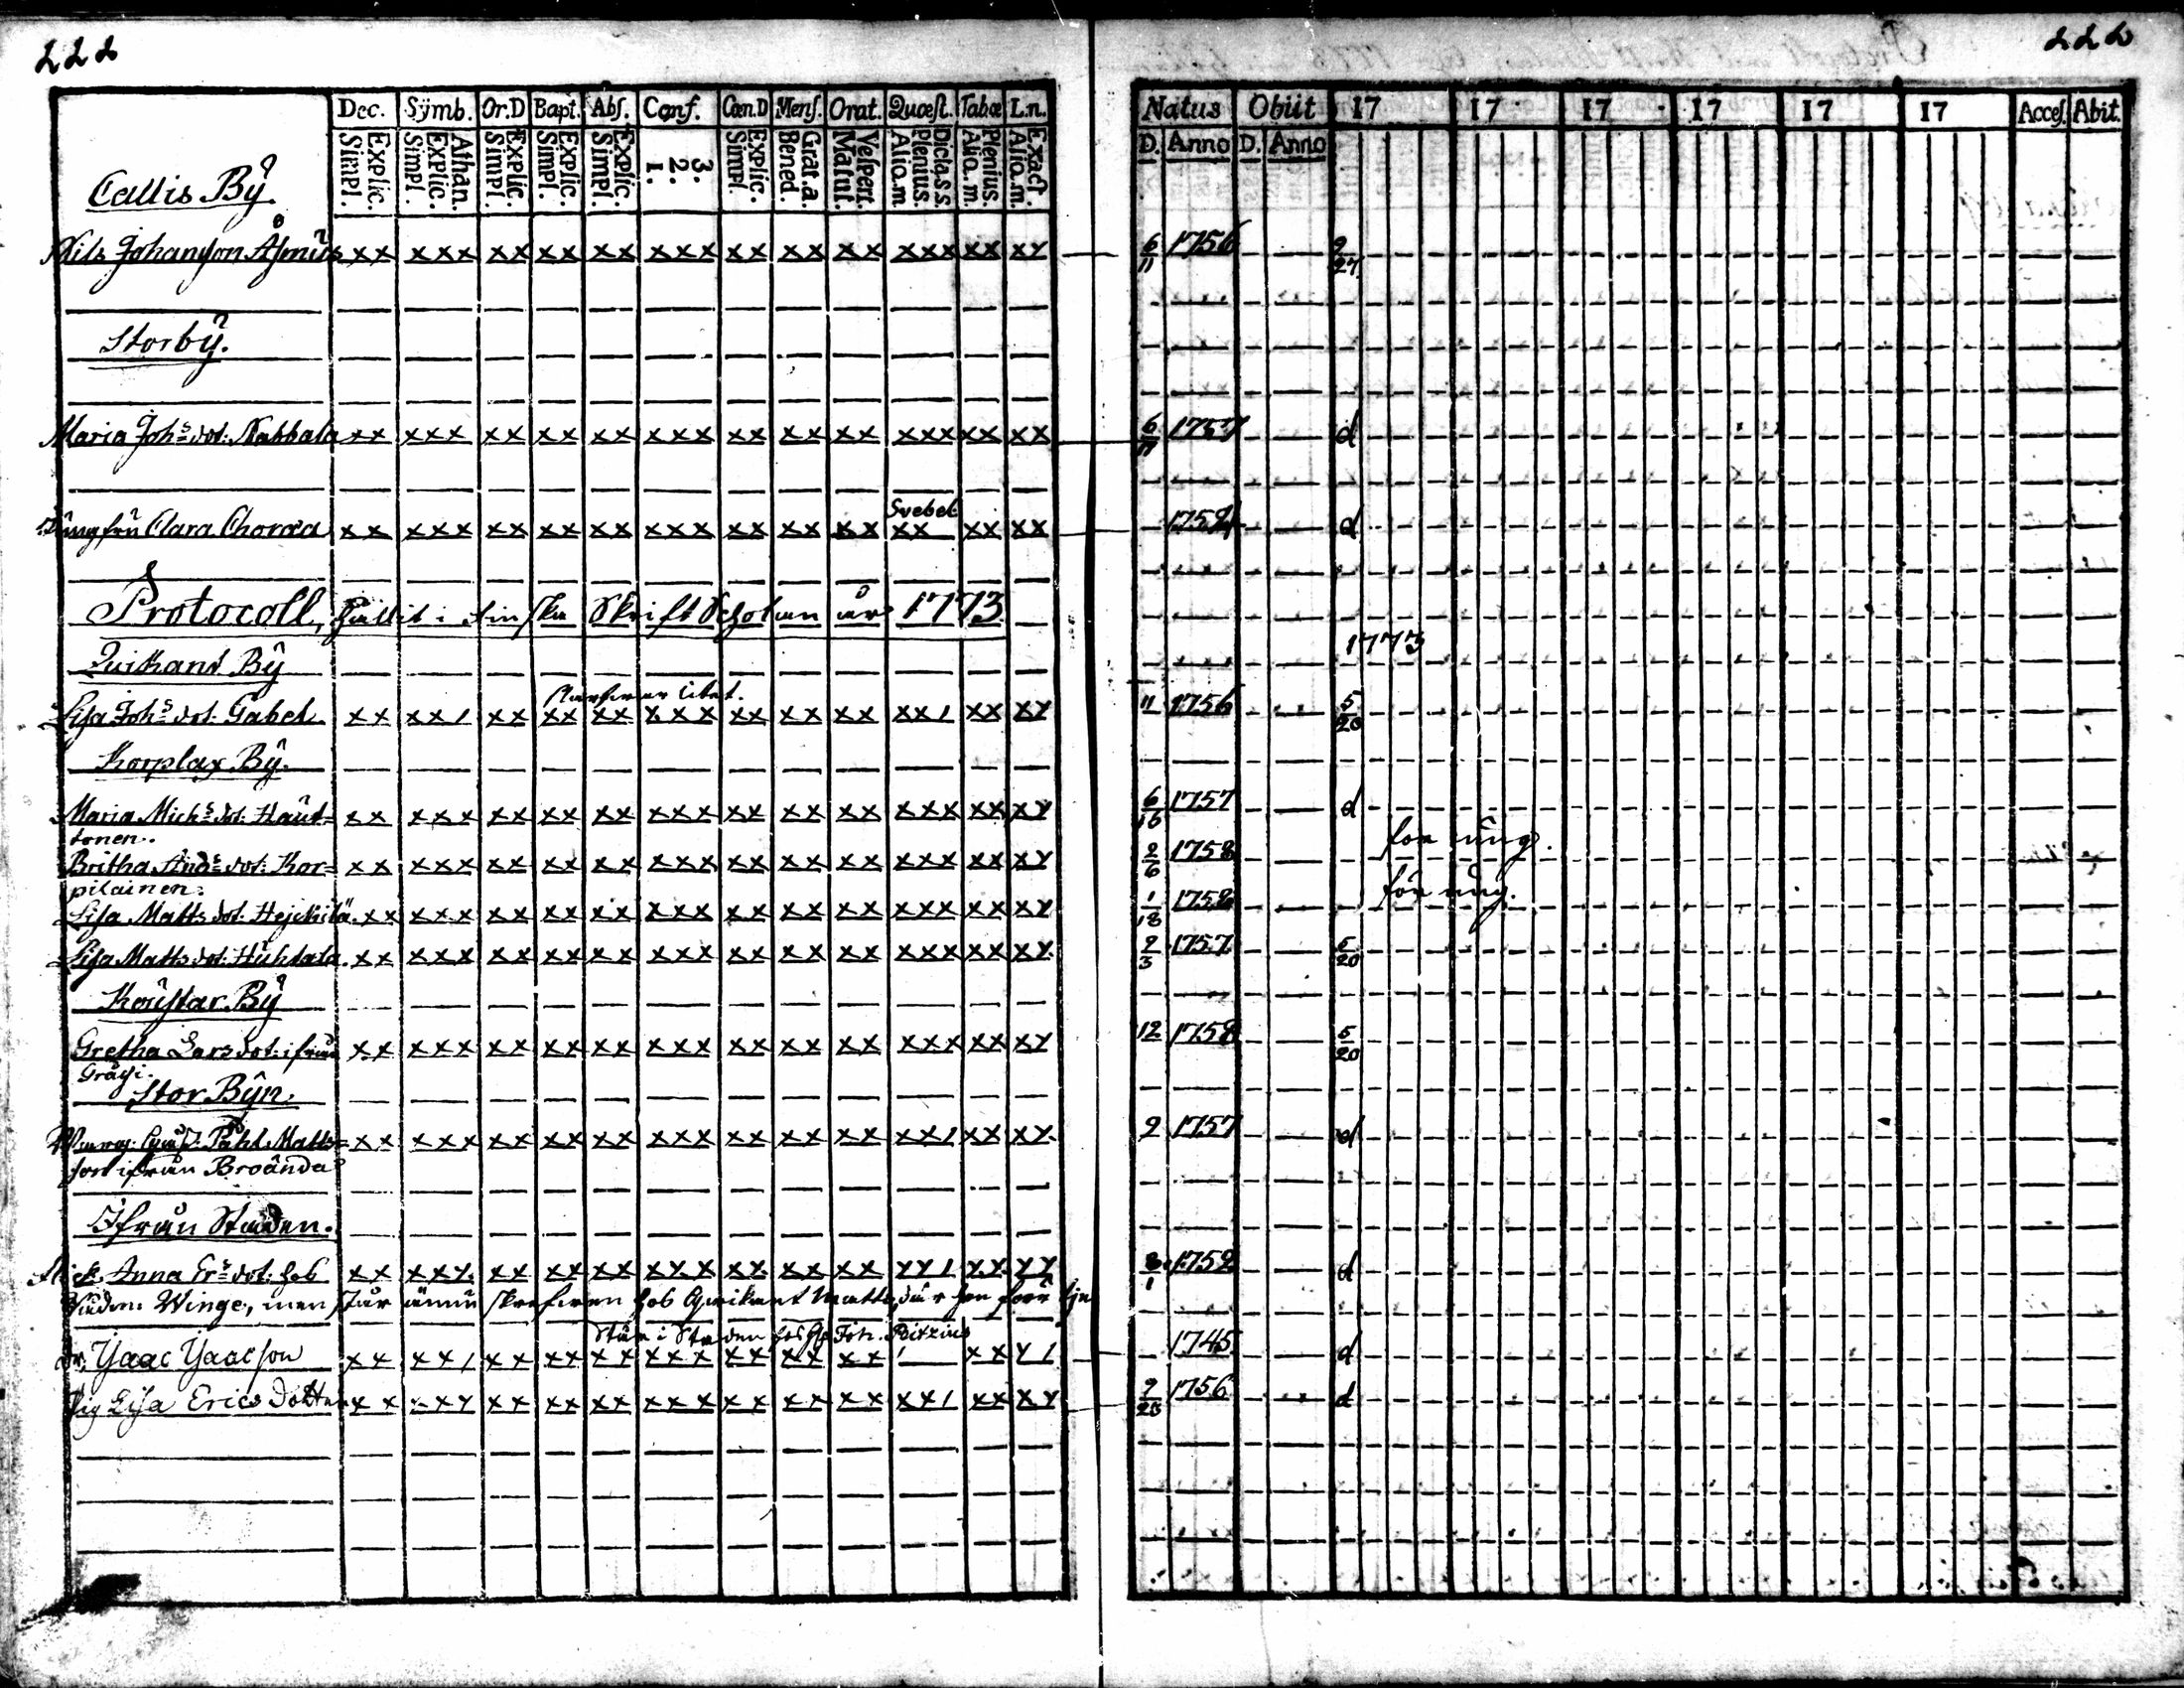 222
222
Dec. Sÿmb. Or.D Bapt. Abſ. Conf. Cœn.D Menſ. Orat. Quœſt. Tabœ L.n.
Explic. Simpl. Athan. Explic. Simpl. Explic. Simpl. Explic. Simpl. Explic. Simpl. 3. 2. 1. Explic. Simpl. Grat.a. Bened. Veſpert. Matut. Dicta s.s. Plenius. Alio.m. Plenius. Alio.m. Exact. Alio.m.
Natus Obiit 17 17 17 17 17 17 Acceſ. Abit.
D. Anno D. Anno
Callis Bÿ.
Nils Johanſon Åſmus xx xxx xx xx xx xxx xx xx xx xxx xx xy 6/11 1756 9/27
Storbÿ.
Maria Johs dot: Nabbala xx xxx xx xx xx xxx xx xx xx xxx xx xx 6/11 1757 d
Svebel.
Jungfru Clara Choræa xx xxx xx xx xx xxx xx xx xx xx xx xx 1754 d
Protocoll, hållit i Finſka Skrift Scholan år 1773
1773
Quikand Bÿ
Liſa Johs dot: Gabel xx xx/ xx xx xx xxx xx xx xx xx/ xx xy 11 1756 5/20
Korplax Bÿ.
Maria Michs dot: Haut= xx xxx xx xx xx xxx xx xx xx xxx xx xy 6/16 1757 d
tonen.
Britha Ands dot: Kor= xx xxx xx xx xx xxx xx xx xx xxx xx xy 2/6 1758 för ung.
pilainen.
Liſa Matts dot: Hejckilä xx xxx xx xx xx xxx xx xx xx xxx xx xy 1/18 1758 för ung.
Liſa Matts dot: Huhtala xx xxx xx xx xx xxx xx xx xx xxx xx xy 2/3 1757 5/20
Kouſtar Bÿ
Gretha Lars dot: ifrån xx xxx xx xx xx xxx xx xx xx xxx xx xy 12 1758 5/20
Gräſi.
Stor Bÿn.
Påhl Matts= xx xxx xx xx xx xxx xx xx xx xx/ xx xy 9 1757 d
ſon ifrån Broända
Ifrån Staden.
Anna Ers dot: hos xx xxy xx xx xx xxx xx xx xx yy/ xy yy 8/1 1752 d
Winge, men står ännu ſkrefven hos Matts, där hon förr
Står i Staden hos Joh. Bitzius
Dr. Yſaac Yſaacſon xx xx/ xx xx xx xxx xx xx xx / xx y/ 1745 d
Pig Liſa Erics Dotter xx xxy xx xx xx xxx xx xx xx xx/ xx xy 9/28 1756 d